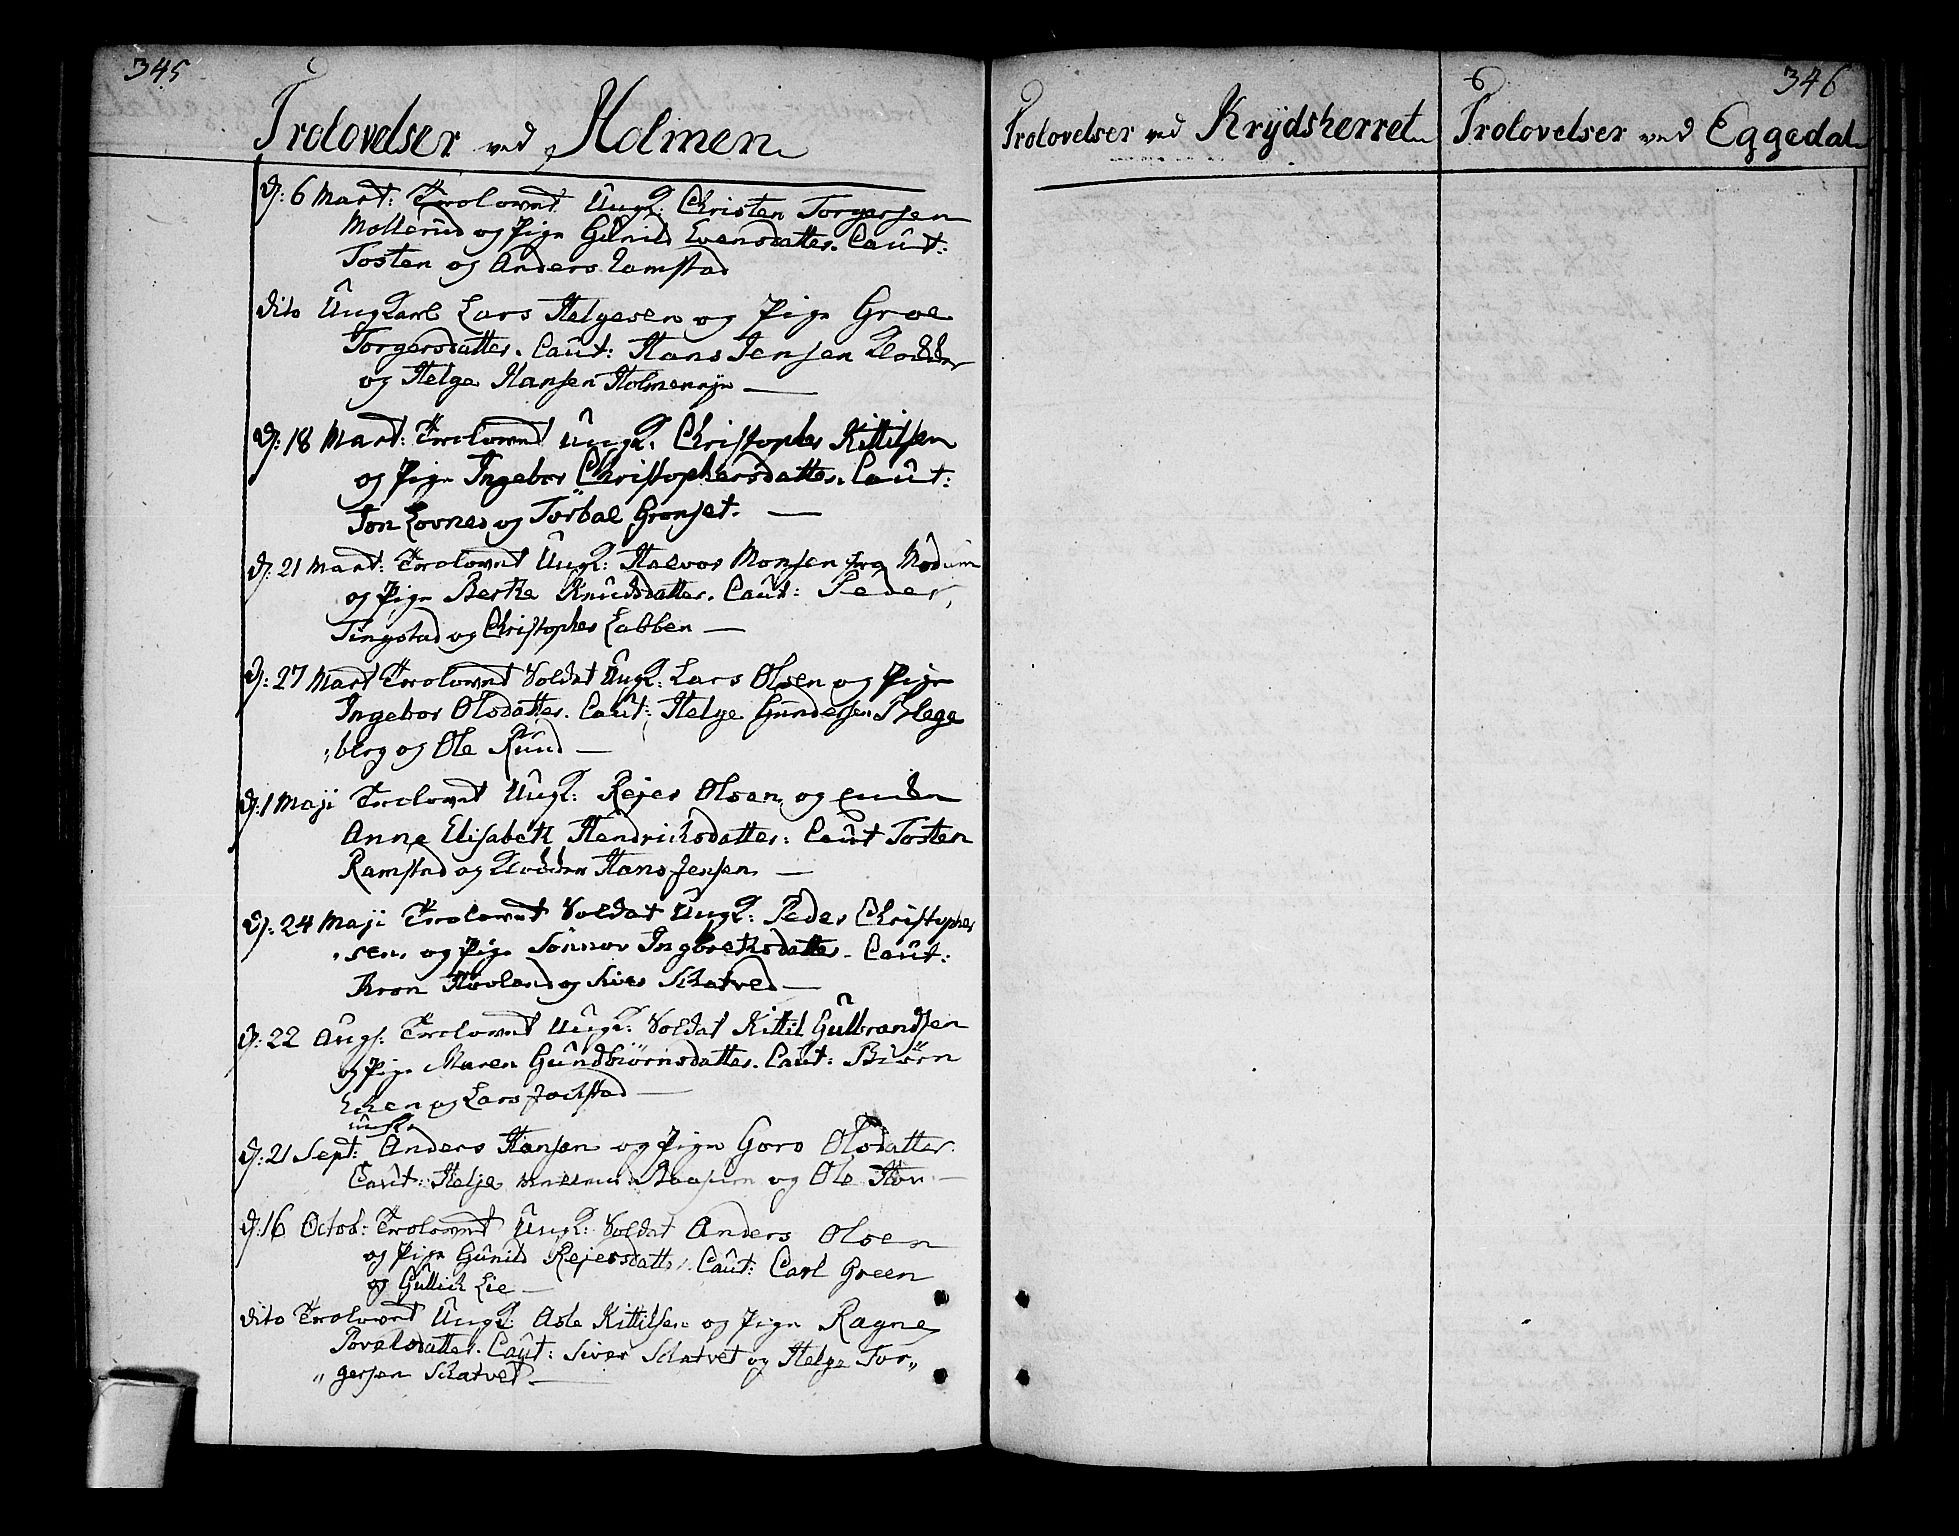 345
Trolovelser ved Holmen
D: 6 Mart: Trolovet Ungk: Christen Torgersen
Mollerud og Pige Gunild Evensdatter. Caut:
Tosten og Anders Ramstad
dito Ungkarl Lars Helgesen og Pige Groe
Torgersdatter. Caut: Hans Jensen Klokker
og Helge Hansen Holmennje
D: 18 Mart: Trolovet Ungk. Christopher Kittilsen
og Pige Ingebor Christophersdatter. Caut:
Jon Lovnes og Torbal Gronset.
D: 21 Mart: Trolovet Ungk: Halvor Monsen fra Modum
og Pige Berthe Knudsdatter. Caut: Peder
Tingstad og Christopher Labben
D: 27 Mart Trolovet Soldat Ungk: Lars Olsen og Pige
Ingebor Olsdatter. Caut: Helge Gundersen Blege
berg og Ole Ruud
D: 1 Maji Trolovet Ungk: Rejer Olsen og Enken
Anne Elisabeth Hendrichsdatter: Caut Tosten
Ramstad og Klokker Hans Jensen
D: 24 Maji Trolovet Soldat Ungk: Peder Christopher
sen og Pige Sönnov Ingbrethsdatter. Caut:
Thron Hovland og Siver Schatved
D: 22 Augs: Trolovet Ungk: Soldat Kittil Gulbrandsen
og Pige Maren Gundbiörnsdatter. Caut: Biörn
Eken og Lars Jocstad
ungk.
D: 21 Sept: Anders Hansen og Pige Goro Olsdatter.
Caut: Helje Baasum og Ole Hov
D: 16 Octob: Trolovet Ungk: Soldat Anders Olsen
og Pige Gunild Rejersdatter. Caut: Carl Green
og Gullich Lie
dito Trolovet Ungk: Asle Kittilsen og Pige Ragne
Povelsdatter. Caut: Siver Schatvet og Helge Tor„
„ gersen Schatvet
Trolovelser ved Krydsherret
346
Trolovelser ved Eggedal